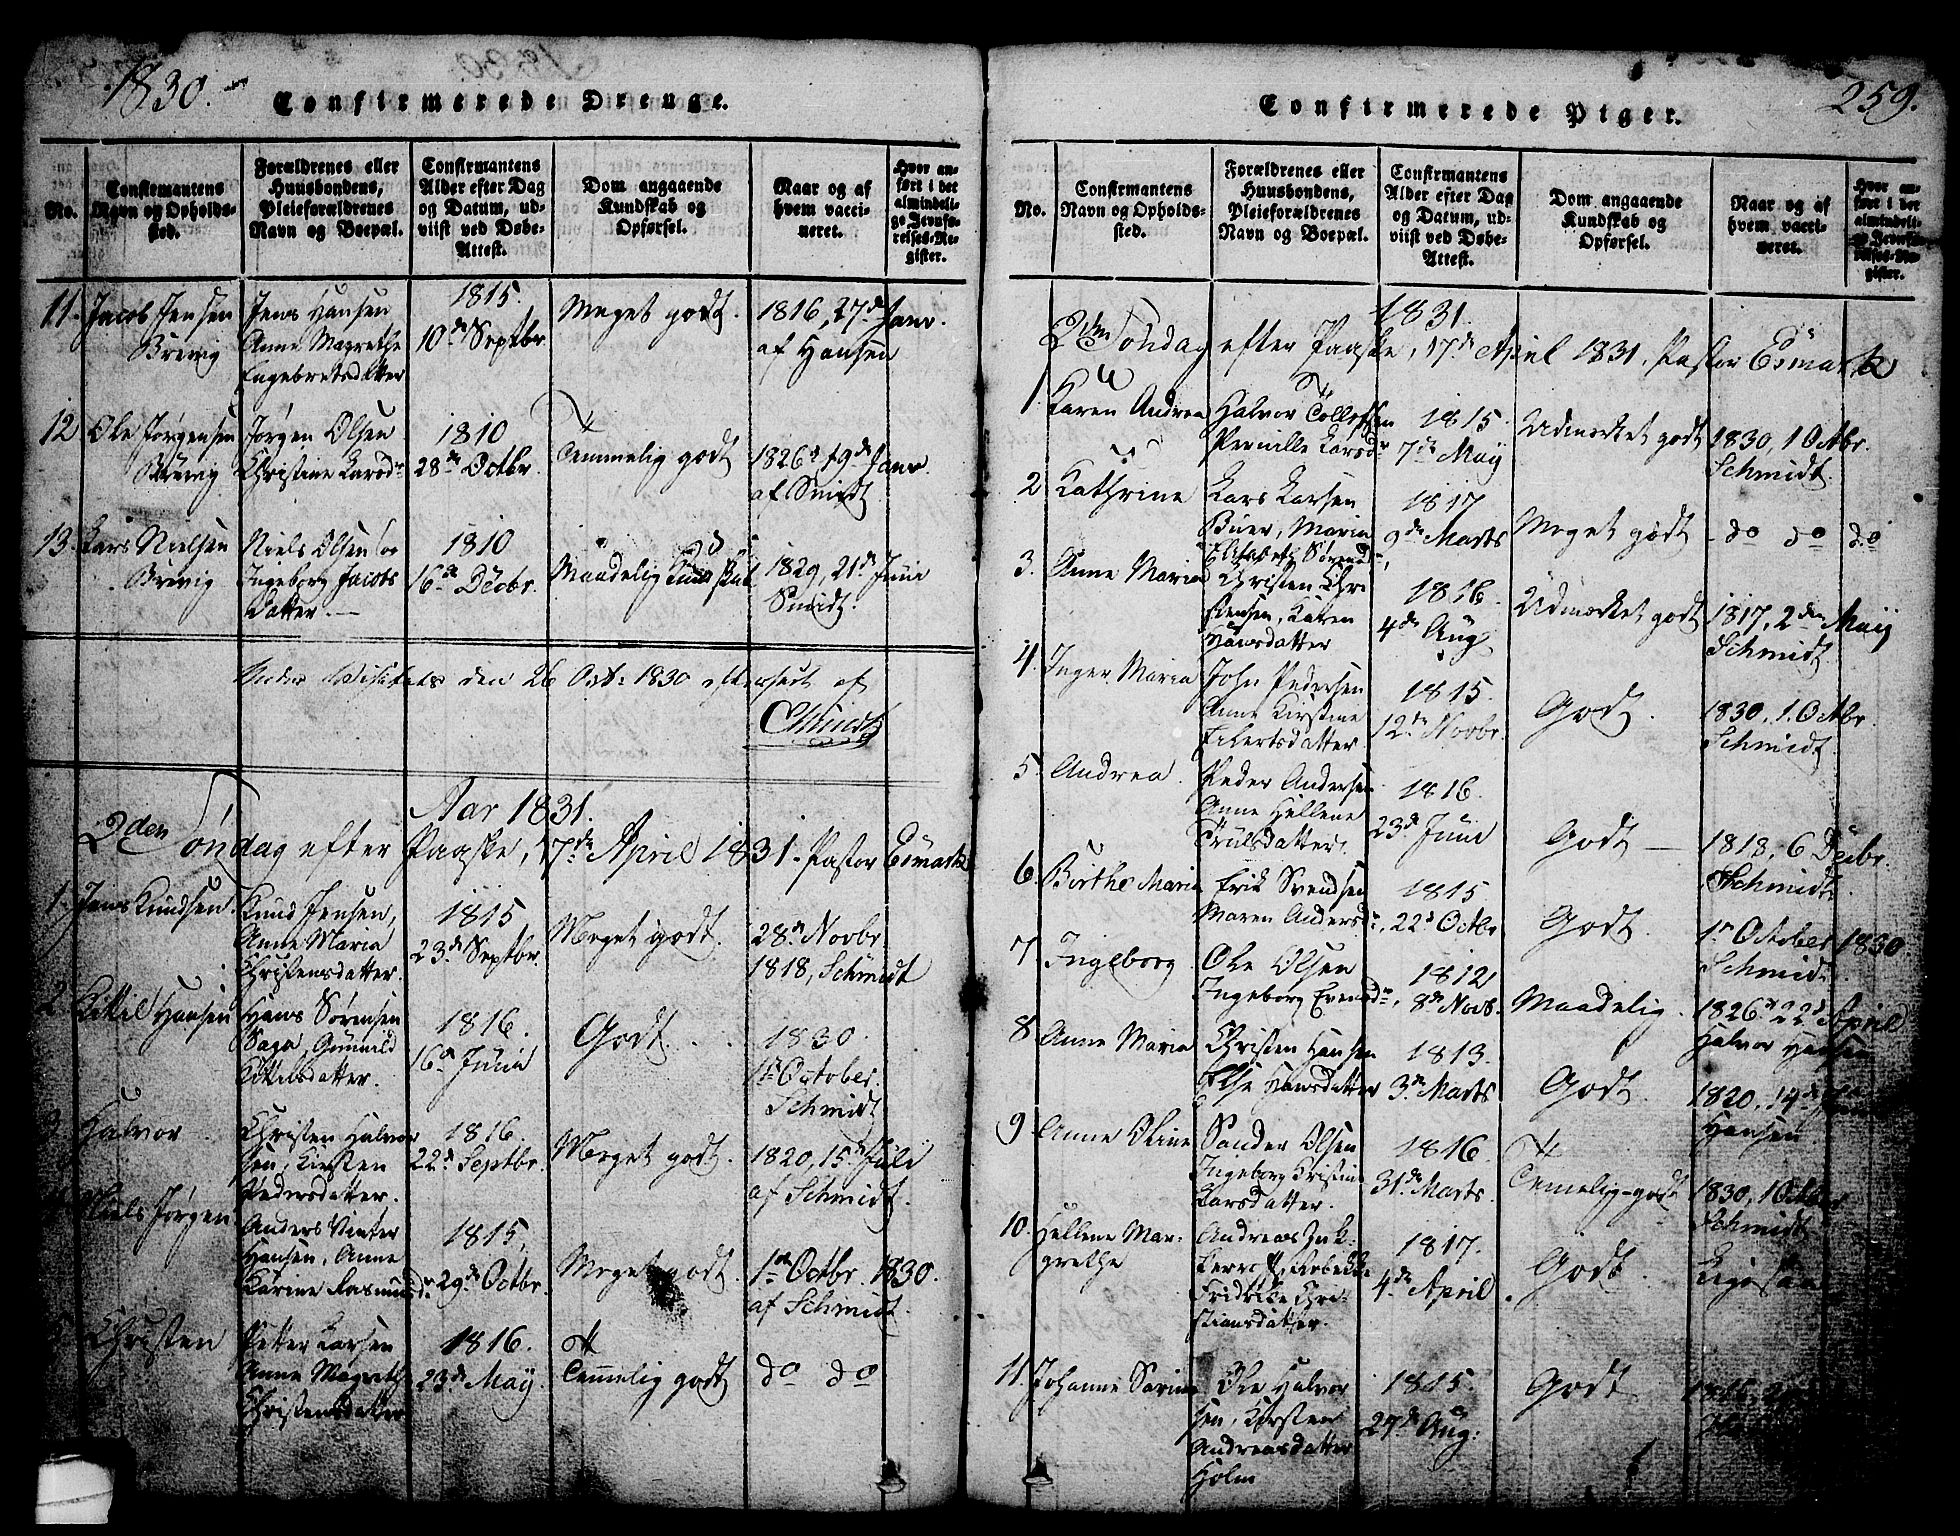 1830.
Confirmerede Drenge.
No.
Confirmantens
Navn og Opholds-
sted.
Forældrenes eller
Huusbondens,
Pleieforældrenes
Navn og Boepæl.
Confirmantens
Alder efter Dag
og Datum, ud-
viist ved Døbe-
Attest.
Dom angaaende
Kundskab og
Opførsel.
Naar og af
hvem vacci-
neret.
Hvor an-
ført i det
almindeli-
ge Jevnfø-
relses-Re-
gister.
11. Jacob Jensen
Brevig
Jens Hansen
Anne Magrethe
Engebretsdatter
1815.
10de Septbr
Meget godt.
1816, 27de Janv.
af Hansen
12 Ole Jørgensen
Brevig
Jørgen Olsen
Christine Larsdr
1810
28de Octbr.
Temmelig godt
1826, 19de Janv.
af Smidt.
13. Lars Nielsen
Brevig
Niels Olsen
Ingeborg Jacobs
datter.
1810
16de Decbr.
Maadelig Kundskab
1829, 21de Junii
Smidt.
Under Visitats den 26 Oct: 1830 efterseet af
Aar 1831.
2den Søndag efter Paaske, 17de April 1831. Pastor Esmark
1. Jens Knudsen
Knud Jensen,
Anne Maria
Christensdatter.
1815
23de Septbr.
Meget godt.
28de Novbr.
1818, Schmidt
2 Kittil Hansen
Hans Sørensen
Saga, Gunild
Kittelsdatter.
1816.
16de Junii
Godt.
1830.
1ste October.
Schmidt
3 Halvor
Christen Halvor
sen, Kirsten
Pedersdatter.
1816.
22de Septbr.
Meget godt.
1820, 15de Julii
af Schmidt.
4 Niels Jørgen
Anders Winter
Hansen, Anne
Karine Rasmusdr
1815,
29de Octbr.
Meget godt.
1ste Octbr. 1830.
af Schmidt.
Christen
Petter Larsen
Anne Magreth
Christensdatter
1816.
23de Maij.
Temmelig godt
do do
259.
Confirmerede Piger.
No.
Confirmantens
Navn og Opholds-
sted.
Forældrenes eller
Huusbondens,
Pleieforældrenes
Navn og Boepæl.
Confirmantens
Alder efter Dag
og Datum, ud-
viist ved Døbe-
Attest.
Dom angaaende
Kundskab og
Opførsel.
Naar og af
hvem vacci-
neret.
Hvor an-
ført i det
almindeli-
ge Jevnfø-
relses-Re-
gister.
1831.
2den Søndag efter Paaske, 17de April 1831. Pastor Esmark
1 Karen Andrea
Halvor Tollofsen
Pernille Larsdr
1815.
7de Maij
Udmerket godt
1830, 1 Octbr.
Schmidt.
2 Kathrine
Lars Larsen
Buer, Maria
Elisabeth Sørensdr
1817
9de Marts
Meget godt
do do do
3. Anne Maria
Christen Chri
stensen, Karen
Hansdatter
1816.
4de Aug
Udmerket godt
1817, 2den Maij
Schmidt.
4. Inger Maria
John Pedersen
Anne Kirstine
Eilertsdatter
1815.
12te Novbr.
Godt.
1830, 1. Octbr.
Schmidt.
5. Andrea.
Peder Andersen
Anne Hellene
Trulsdatter.
1816.
23de Junii
Godt
1818, 6 Decbr.
Schmidt
6. Birthe Maria
Erik Svendsen
Maren Andersdr
1815
22de Octbr
Godt.
1ste October 1830.
Schmidt
7 Ingeborg
Ole Olsen
Ingeborg Evensdr
1812
8de Novb.
Maadelig.
1826, 22de April
Halvor Hansen
8 Anne Maria
Christen Hansen
Else Hansdatter
1813.
3de Marts
Godt.
1820, 14de
Hansen
9 Anne Oline
Sander Olsen
Ingeborg Kristine
Larsdatter.
1816.
31de Marts.
Temelig-godt
1830, 1 Octbr
Schmidt
10. Hellene Mar-
grethe
Andreas
Rebekke
Fridrikke Chri-
stiansdatter.
1817.
4de April
Godt.
11. Johanne Sarine
Ole Halvor
sen, Kirsten
Andreasdatter
Holm
1815.
27de Aug:
Godt